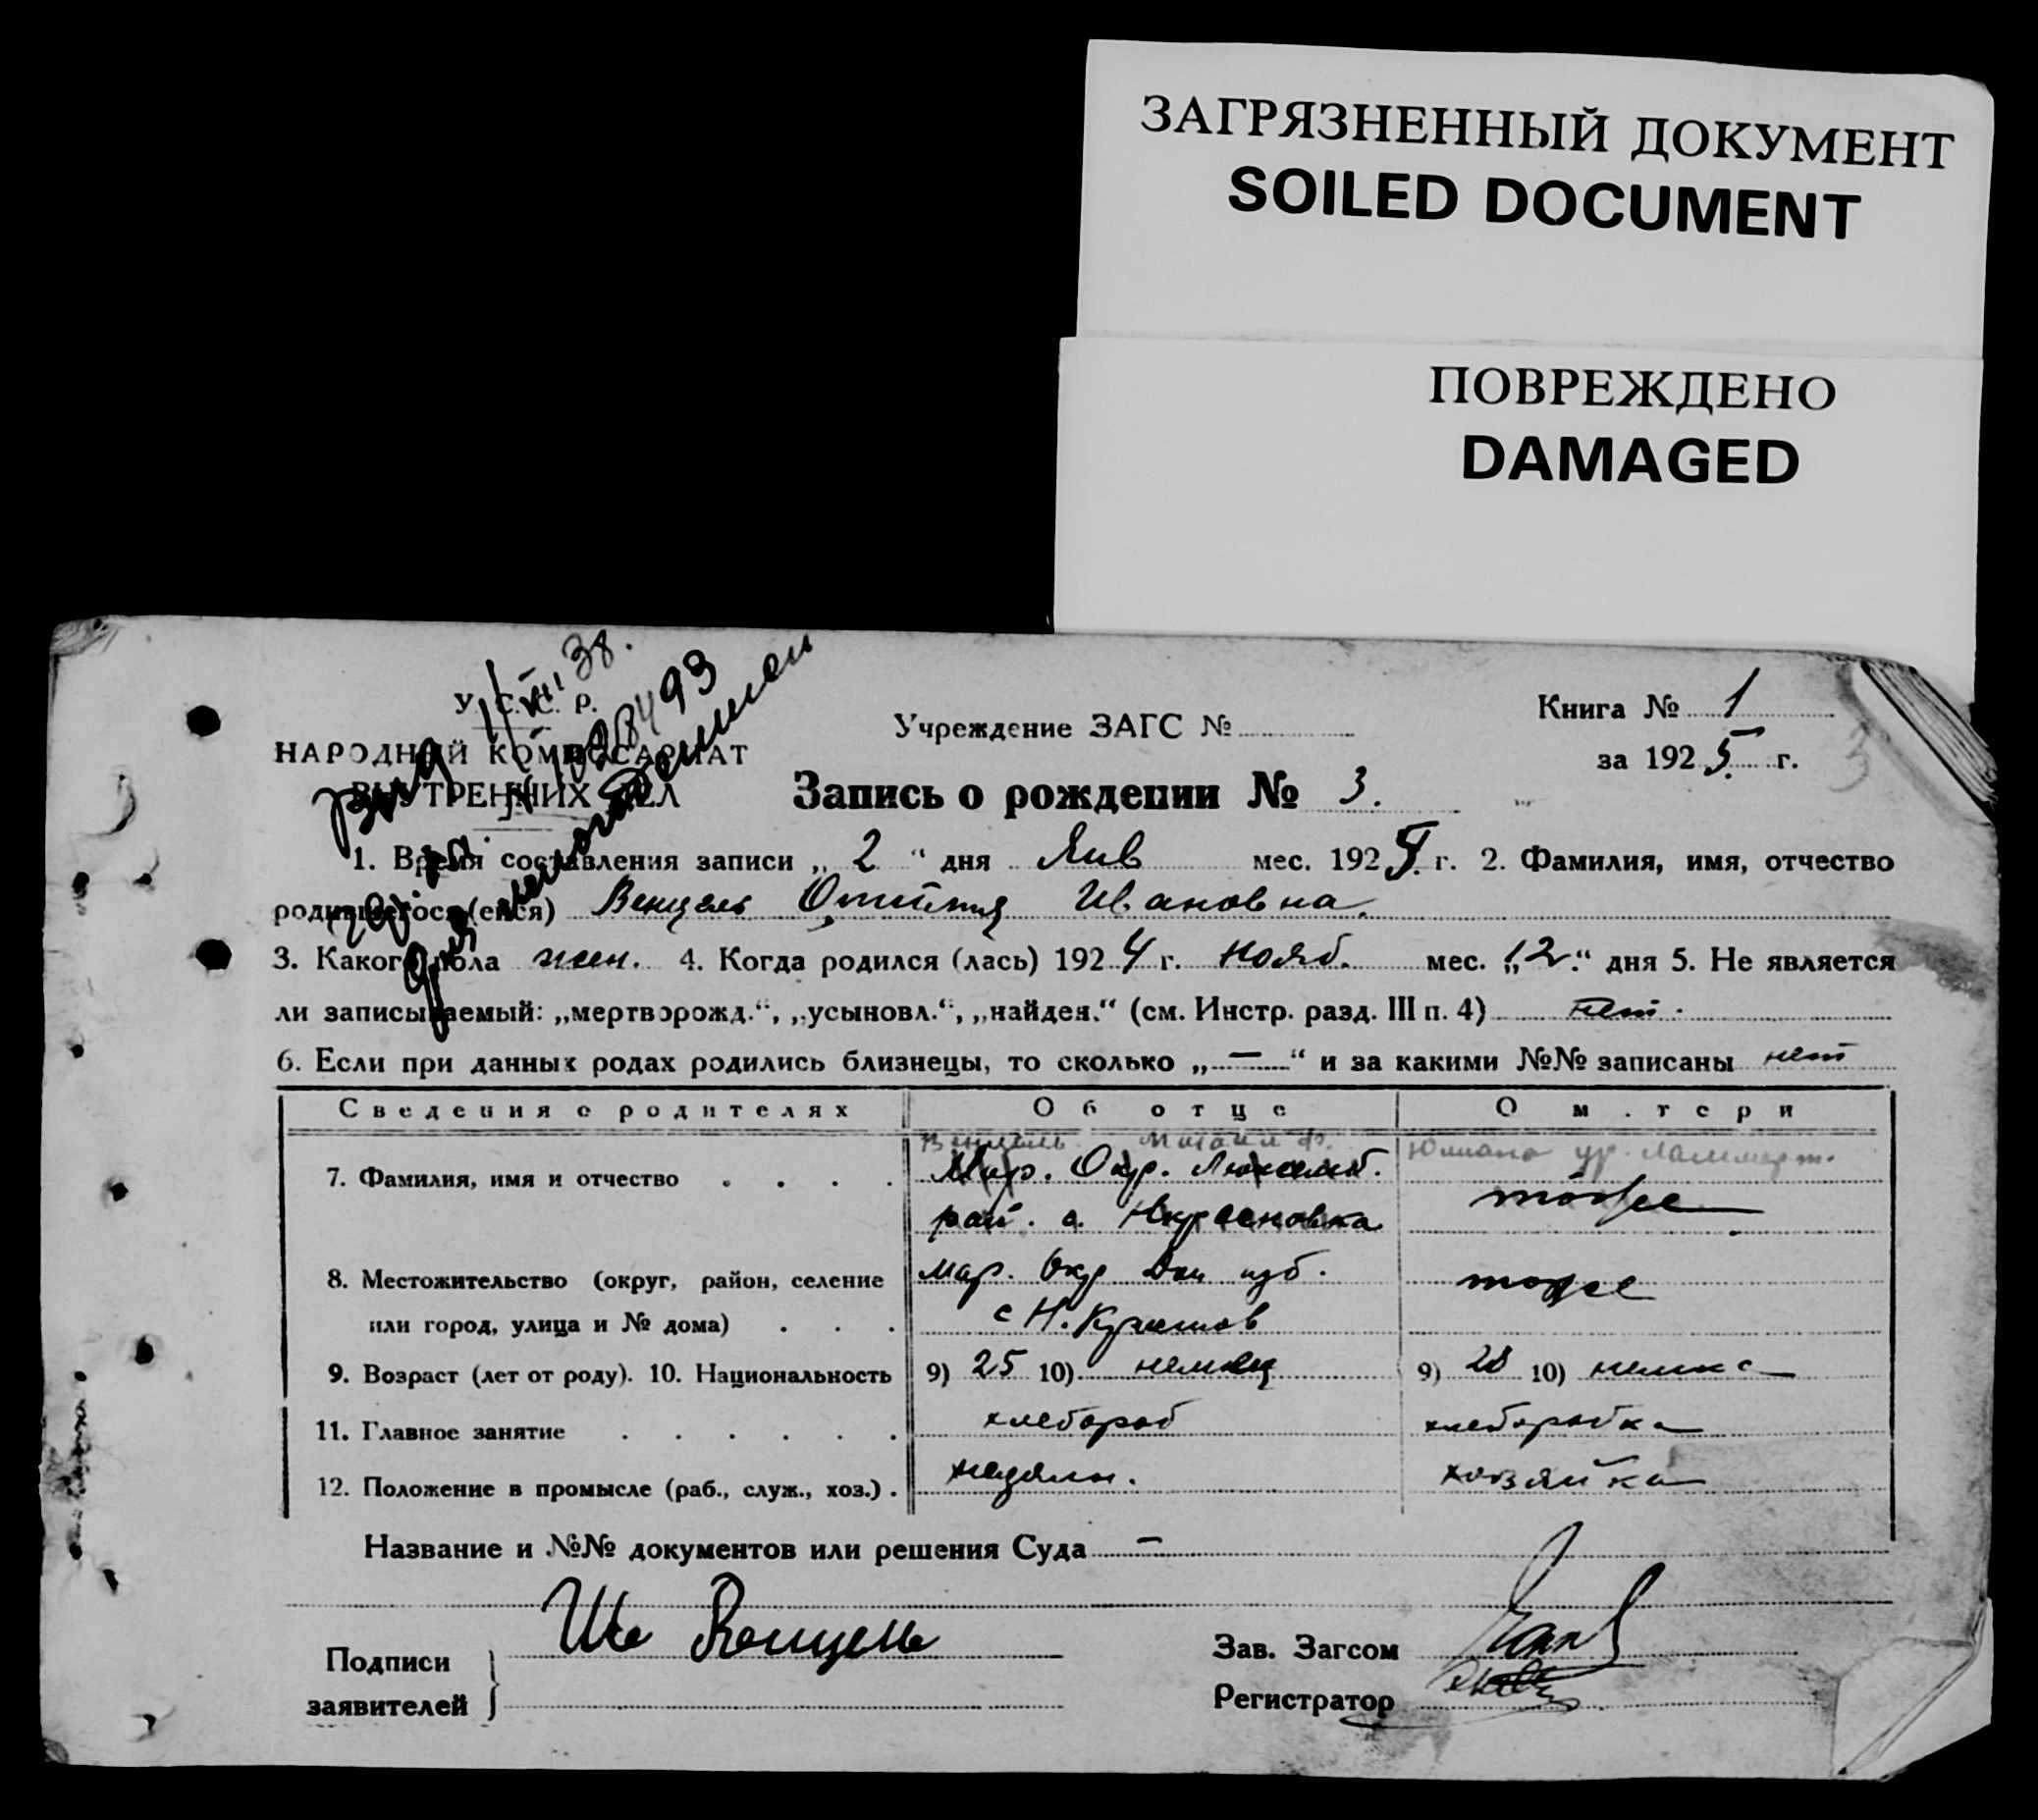 ЗАГРЯЗНЕННЫЙ ДОКУМЕНТ
SOILED DOCUMENT
ПОВРЕЖДЕНО
DAMAGED
У. С. С. Р.
НАРОДНЫЙ КОМИССАРИАТ
ВНУТРЕННИХ ДЕЛ
Учреждение ЗАГС №
Книга № 1
за 1925 г.
Запись о рождении № 3.
1. Время составления записи „ 2 “ дня Янв мес. 1925 г. 2. Фамилия, имя, отчество
родившегося (ейся) Венцель Ивановна
3. Какого пола жен. 4. Когда родился (лась) 1924 г. нояб. мес. „12.“ дня 5. Не является
ли записываемый: „мертворожд.“, „усыновл.“, „найден.“ (см. Инстр. разд. III п. 4) нет.
6. Если при данных родах родились близнецы, то сколько „—“ и за какими №№ записаны нет
Сведения о родителях Об отце О матери
Венцель Юлиана ур.
7. Фамилия, имя и отчество . . . . Мар. Окр. тоже
рай. с.
8. Местожительство (округ, район, селение Мар. Окр тоже
или город, улица и № дома) . . . с Н.
9. Возраст (лет от роду). 10. Национальность 9) 25 10) немец 9) 28 10) немка
11. Главное занятие . . . . . . хлебороб хлеборобка
12. Положение в промысле (раб., служ., хоз.) . хозяйка
Название и №№ документов или решения Суда —
Подписи
заявителей
Венцель
Зав. Загсом
Регистратор